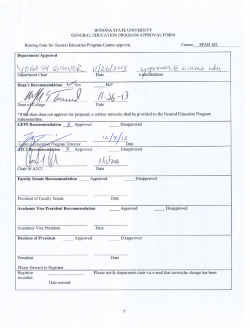 WINONA STATE UNIVERSITY
GENERAL EDUCATION PROGRAM APPROVAL FORM
Routing form for General Education Program Course approval. Course SPAN 102
Department Approval
YOGESH GROVER 11/26/2013 ygrover@winona.edu
Department Chair Date
Dean's Recommendation Yes No*
11-26-13
Dean of College Date
*If the dean does not approve the proposal, a written rationale shall be provided to the General Education Program Subcommittee.
GEPS Recommendation X Approved Disapproved
12/4/13
General Education Program Director Date
A2C2 Recommendation X Approved Disapproved
Chair of A2C2 Date
Faculty Senate Recommendation Approved Disapproved
President of Faculty Senate Date
Academic Vice President Recommendation Approved Disapproved
Academic Vice President Date
Decision of President Approved Disapproved
President Date
Please forward to Registrar.
Registrar Please notify department chair via e-mail that curricular change has been
recorded.
Date entered